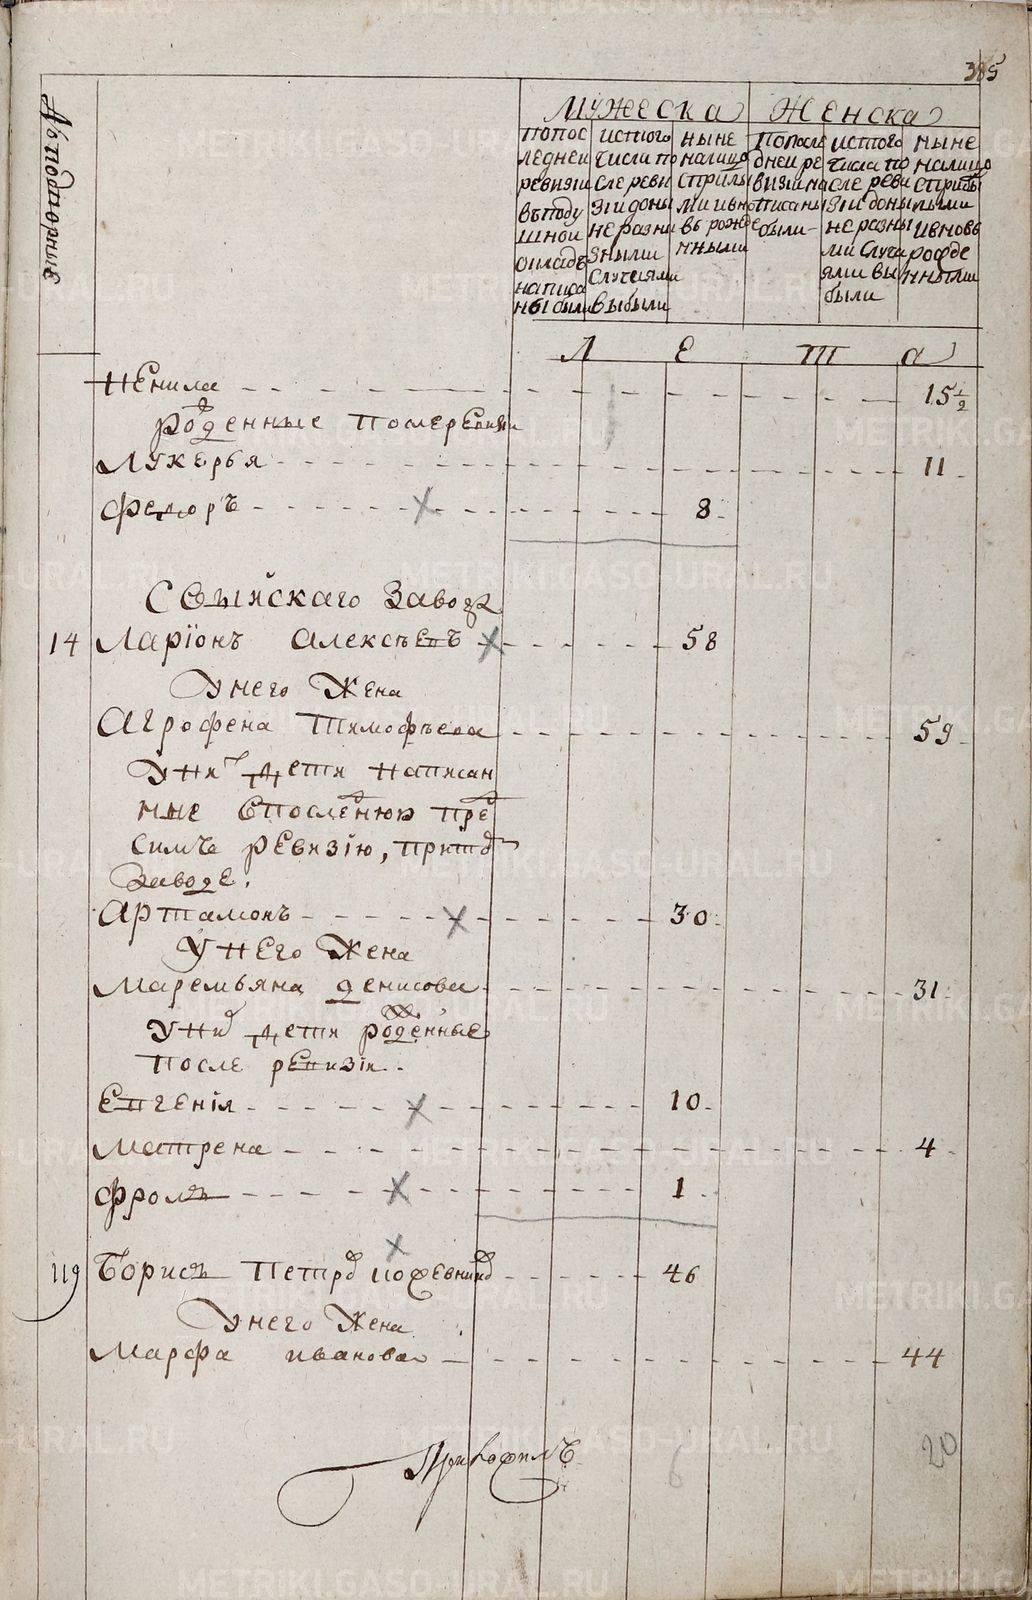 385
№ подворные
Мужеска Женска
попос
ледней
ревизіи
въподу
шной
окладъ
написа
ны были
истого
числа по
сле реви
зіи доны
не разны
зными
случаями
выбыли
ныне
налицо
сприбы
лыми ивно
въ рожде
нными
Попосле
дней ре
визіи на
писаны
были
истого
числа по
сле реви
зіи доны
не разны
ми случа
ями вы
были
ныне
налицо
сприбы
лыми
ивновь
рожде
нными
Л Е т а
Ненила 15 1/2
рожденные после ревизіи
Лукерья 11
Федоръ 8
Сылвинскаго Завода
14 Ларіонъ Алексѣевъ 58
Унего Жена
Агрофена Тимофѣева 59
Уних дети написан
ные впоследнюю пре
симъ ревизію, притом
Заводе.
Артамонъ 30
Унего Жена
Маремьяна денисова 31
Уних дети рожденные
После ревизіи
Евгенія 10
Матрена 4
Фролъ 1
119 Борисъ Петров кожевников 46
Унего Жена
Марфа иванова 44
6
20
METRIKI.GASO-URAL.RU